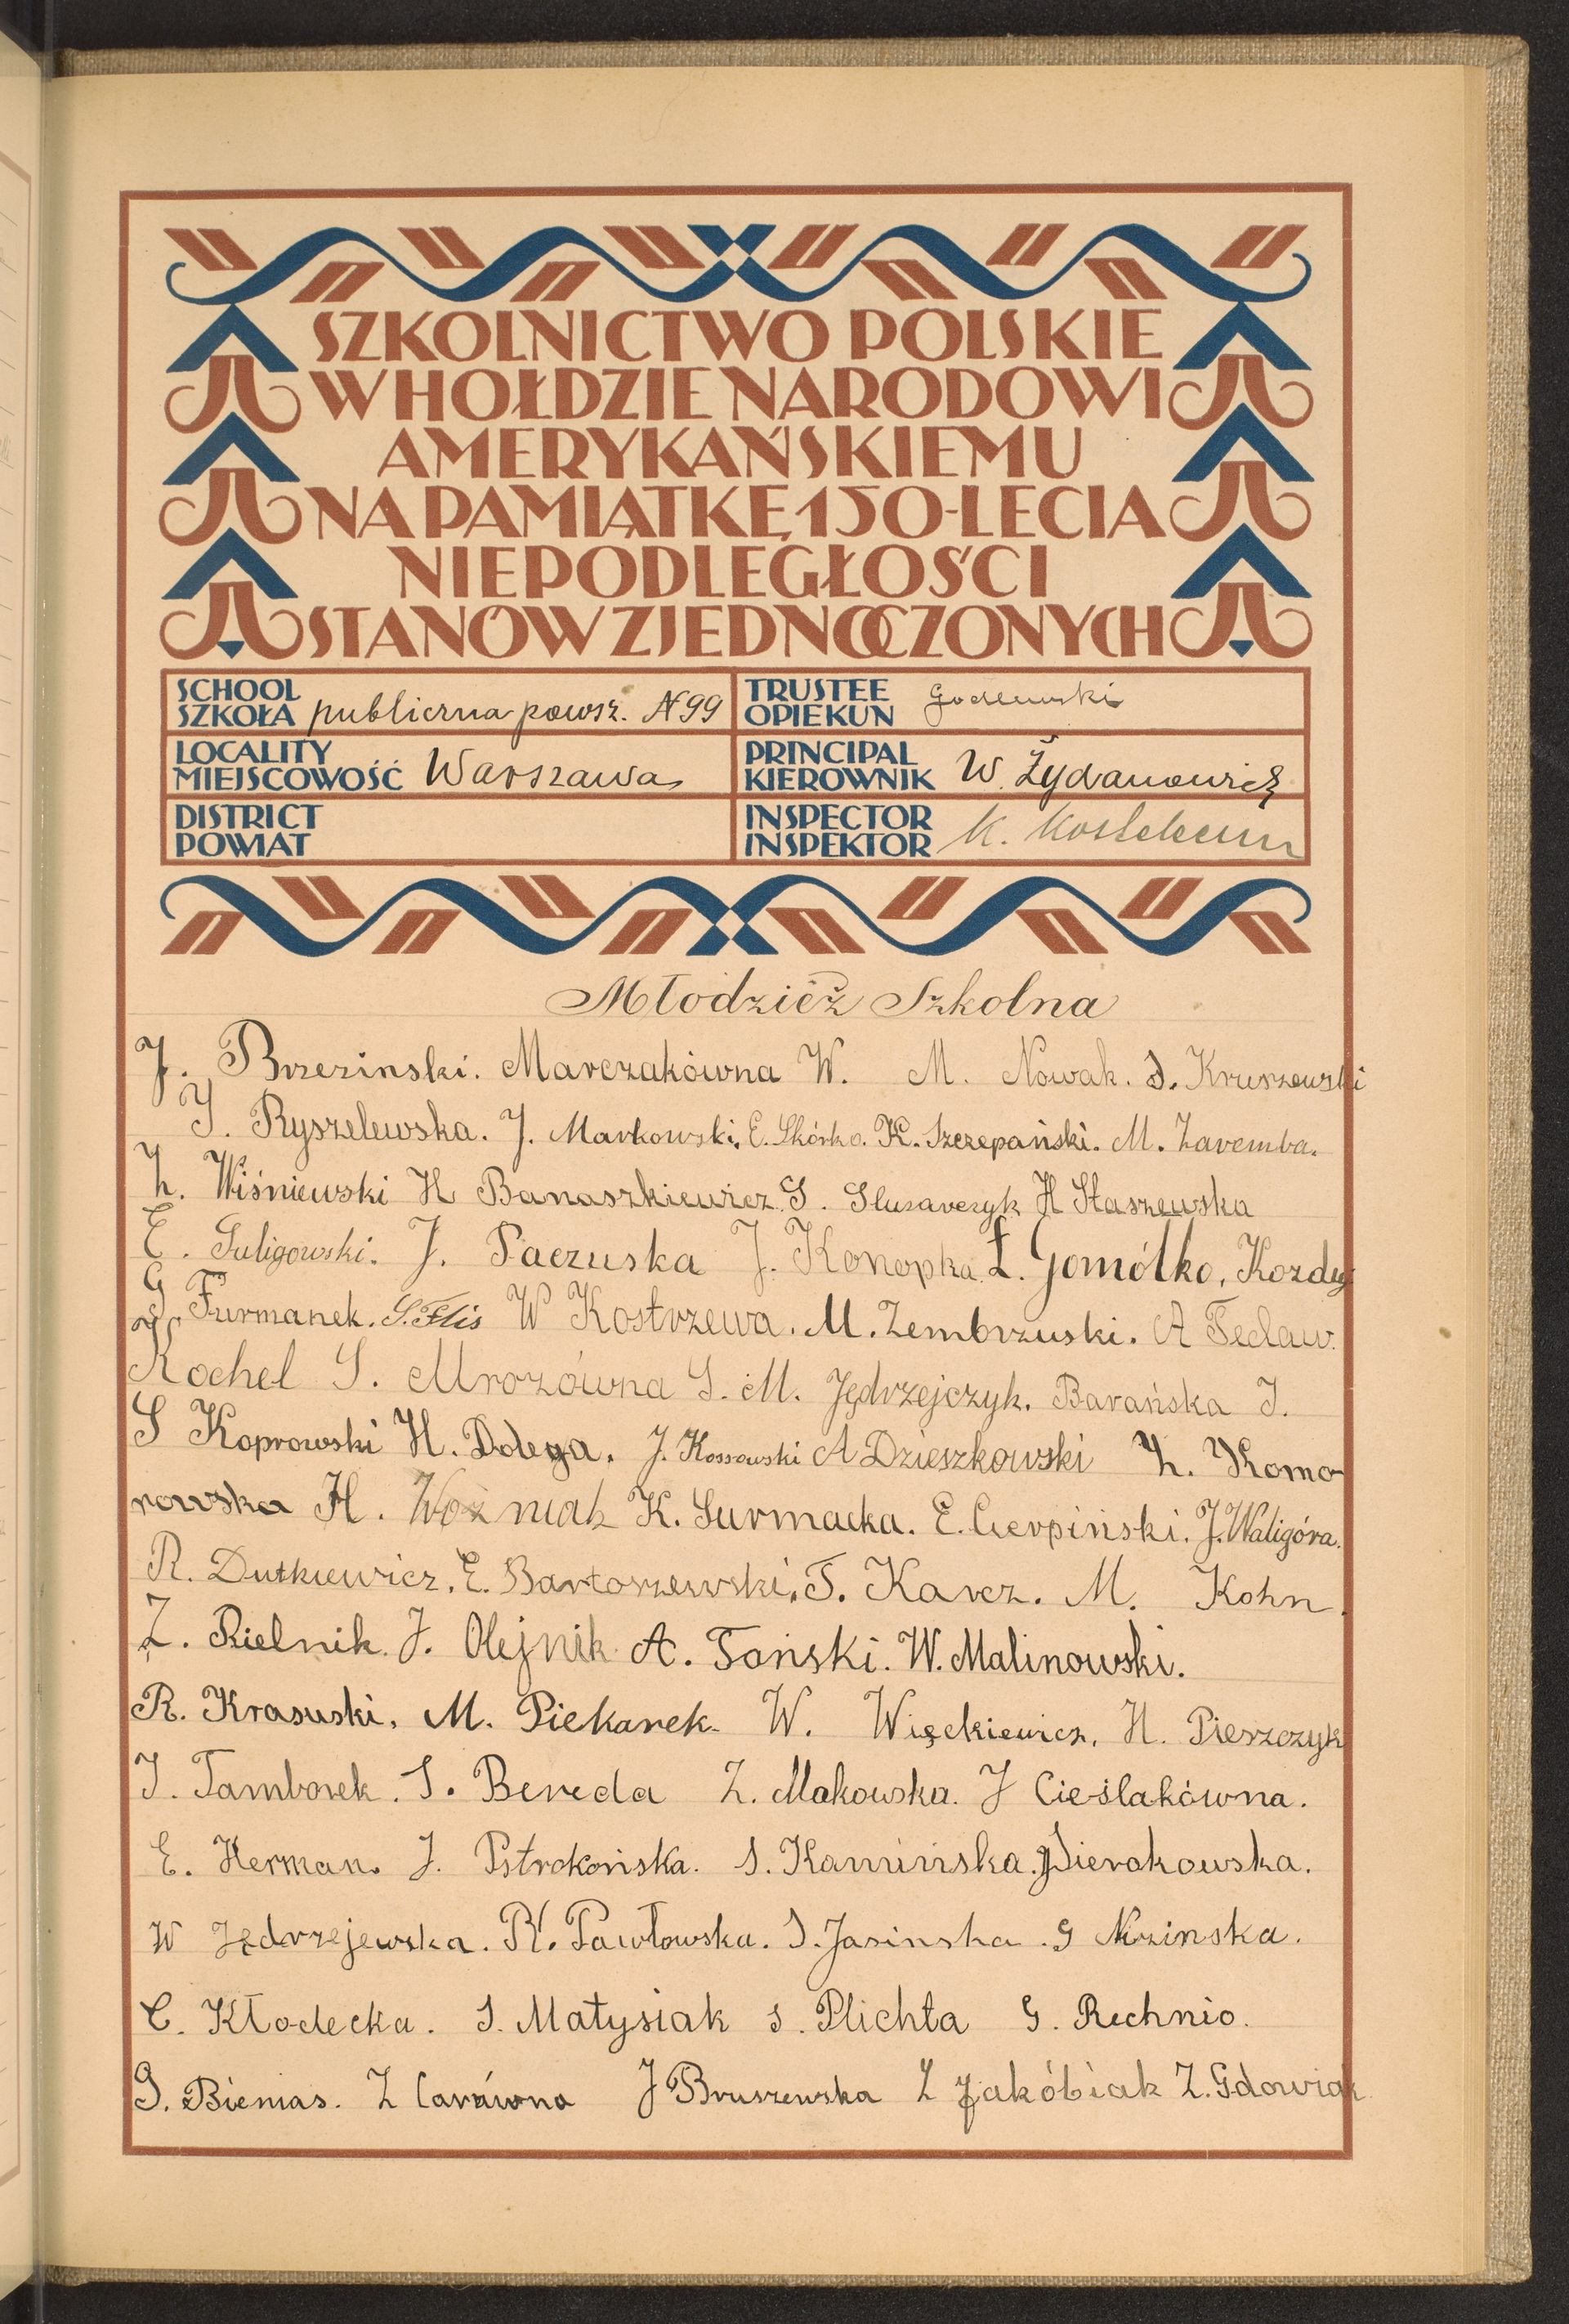 SZKOLNICTWO POLSKIE
W HOŁDZIE NARODOWI
AMERYKAŃSKIEMU
NA PAMIĄTKĘ 150-LECIA
NIEPODLEGŁOŚCI
STANÓW ZJEDNOCZONYCH
SCHOOL
SZKOŁA publiczna powsz. N 99
TRUSTEE
OPIEKUN Godlewski
LOCALITY
MIEJSCOWOŚĆ Warszawa
PRINCIPAL
KIEROWNIK W. Żydanowicz
DISTRICT
POWIAT
INSPECTOR
INSPEKTOR K.
Młodzież Szkolna
J. Brzezinski. Marczakówna W. M. Nowak. S. Kruszewski
J. Ryszelewska. J. Markowski. E. Skórko. K. Szczepański. M. Zaremba.
Z. Wiśniewski H Banaszkiewicz S. Slusarczyk H Staszewska
E. Suligowski. J. Paczuska J. Konopka Ł. Gomółko, Kozdęj
G Furmanek. S. Flis W Kostrzewa. M. Zembrzuski. A Teclaw.
Kochel S. Mrozówna S. M. Jędrzejczyk. Barańska J.
S Koprowski H. Dolega. J. Kossowski A Dzieszkowski Z. Komo-
rowska H. Woźniak K. Surmacka. E. Cierpiński. J. Waligóra.
R. Dutkiewicz. E. Bartoszewski. T. Karcz. M. Kohn.
Z. Rielnik. J. Olejnik A. Tański. W. Malinowski.
R. Krasuski. M. Piekarek. W. Więckiewicz. H. Pieszczyk
J. Tamborek. S. Bereda Z. Makowska. J Cieślakówna.
E. Herman. J. Pstrokońska. S. Kamińska. Sierakowska.
W Jędrzejewska. R. Pawłowska. S. Jasinska. G Nizinska.
C. Kłodecka. S. Matysiak S. Plichta G. Rechnio.
S. Biernas. Z Carówna J Bruszewska Z Jakóbiak Z. Gdowiak